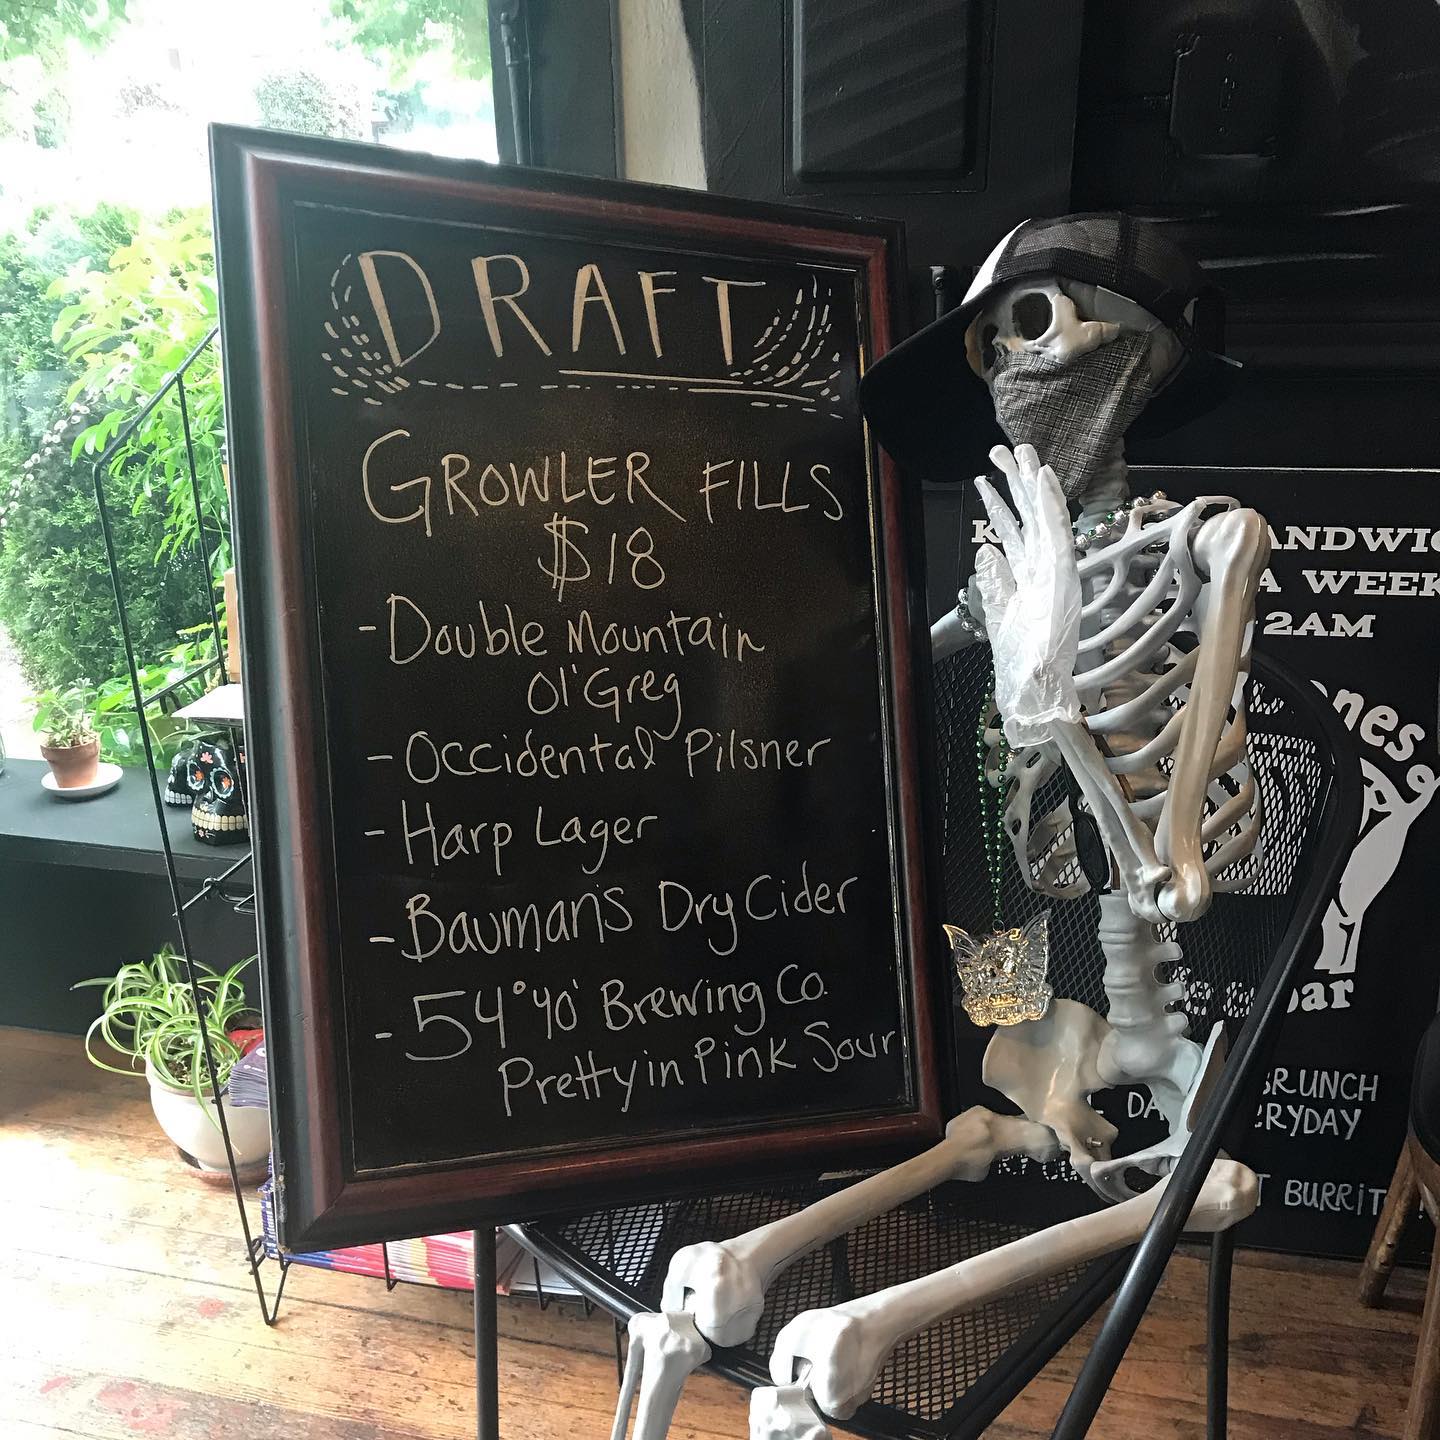 DRAFT
GROWLER FILLS
$18
- Double Mountain
Ol' Greg
- Occidental Pilsner
- Harp Lager
- Bauman's Dry Cider
- 54°40' Brewing Co.
Pretty in Pink Sour
ANDWIC
A WEEK
2AM
nes
bar
BRUNCH
DA
ERYDAY
BURRIT